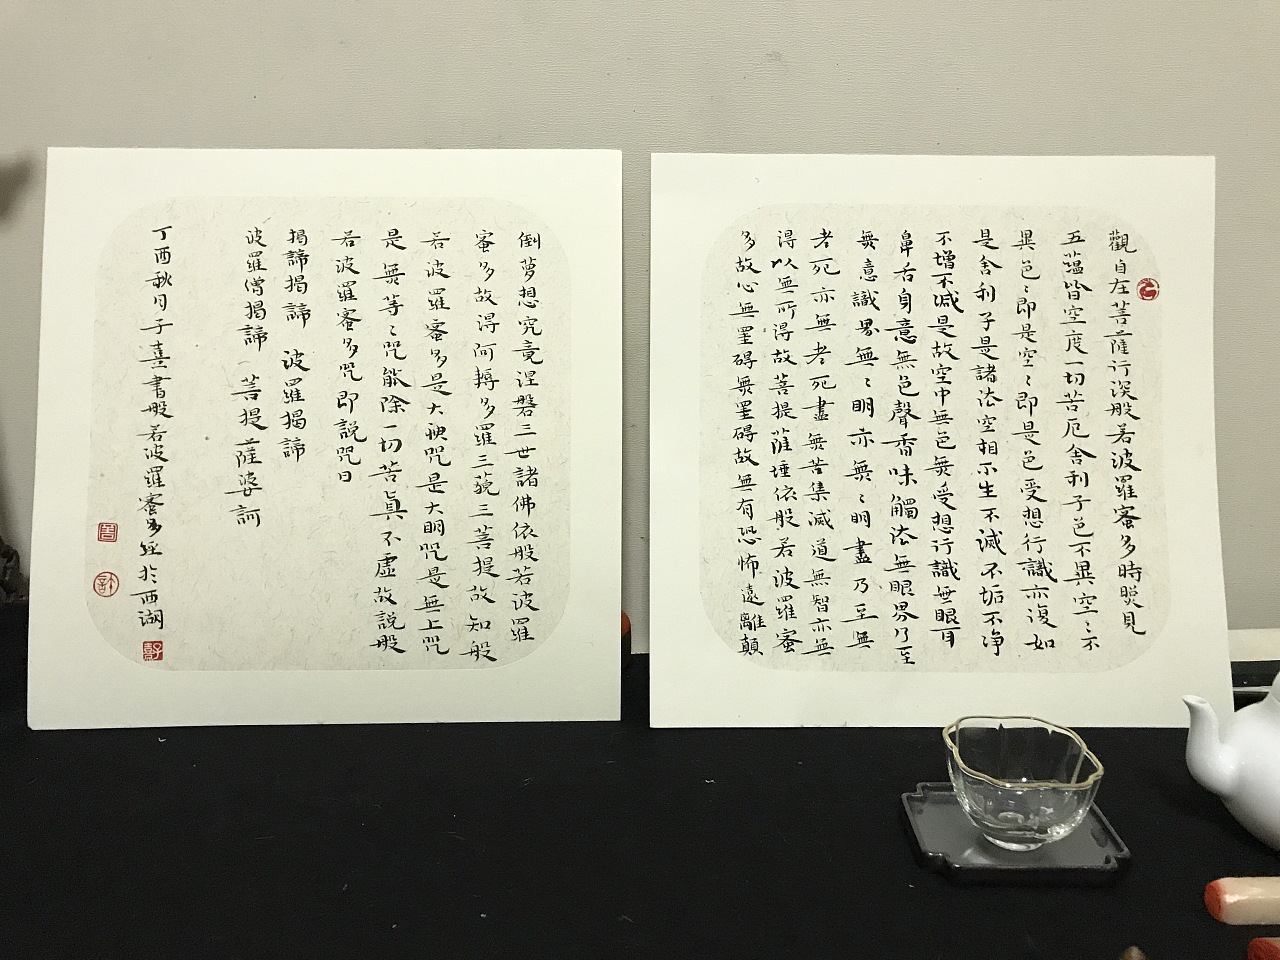 觀自在菩薩行深般若波羅蜜多時照見
五蘊皆空度一切苦厄舍利子色不異空〻不
異色〻即是空〻即是色受想行識亦復如
是舍利子是諸法空相不生不滅不垢不淨
不增不減是故空中無色無受想行識無眼耳
鼻舌身意無色聲香味觸法無眼界乃至
無意識界無〻明亦無〻明盡乃至無
老死亦無老死盡無苦集滅道無智亦無
得以無所得故菩提薩埵依般若波羅蜜
多故心無罣碍無罣碍故無有恐怖遠離顛
倒夢想究竟涅磐三世諸佛依般若波羅
蜜多故得阿耨多羅三藐三菩提故知般
若波羅蜜多是大神咒是大明咒是無上咒
是無等〻咒能除一切苦真不虛故說般
若波羅蜜多咒即說咒曰
揭諦揭諦 波羅揭諦
波羅僧揭諦 菩提薩婆訶
丁酉秋月子喜書般若波羅蜜多經於西湖